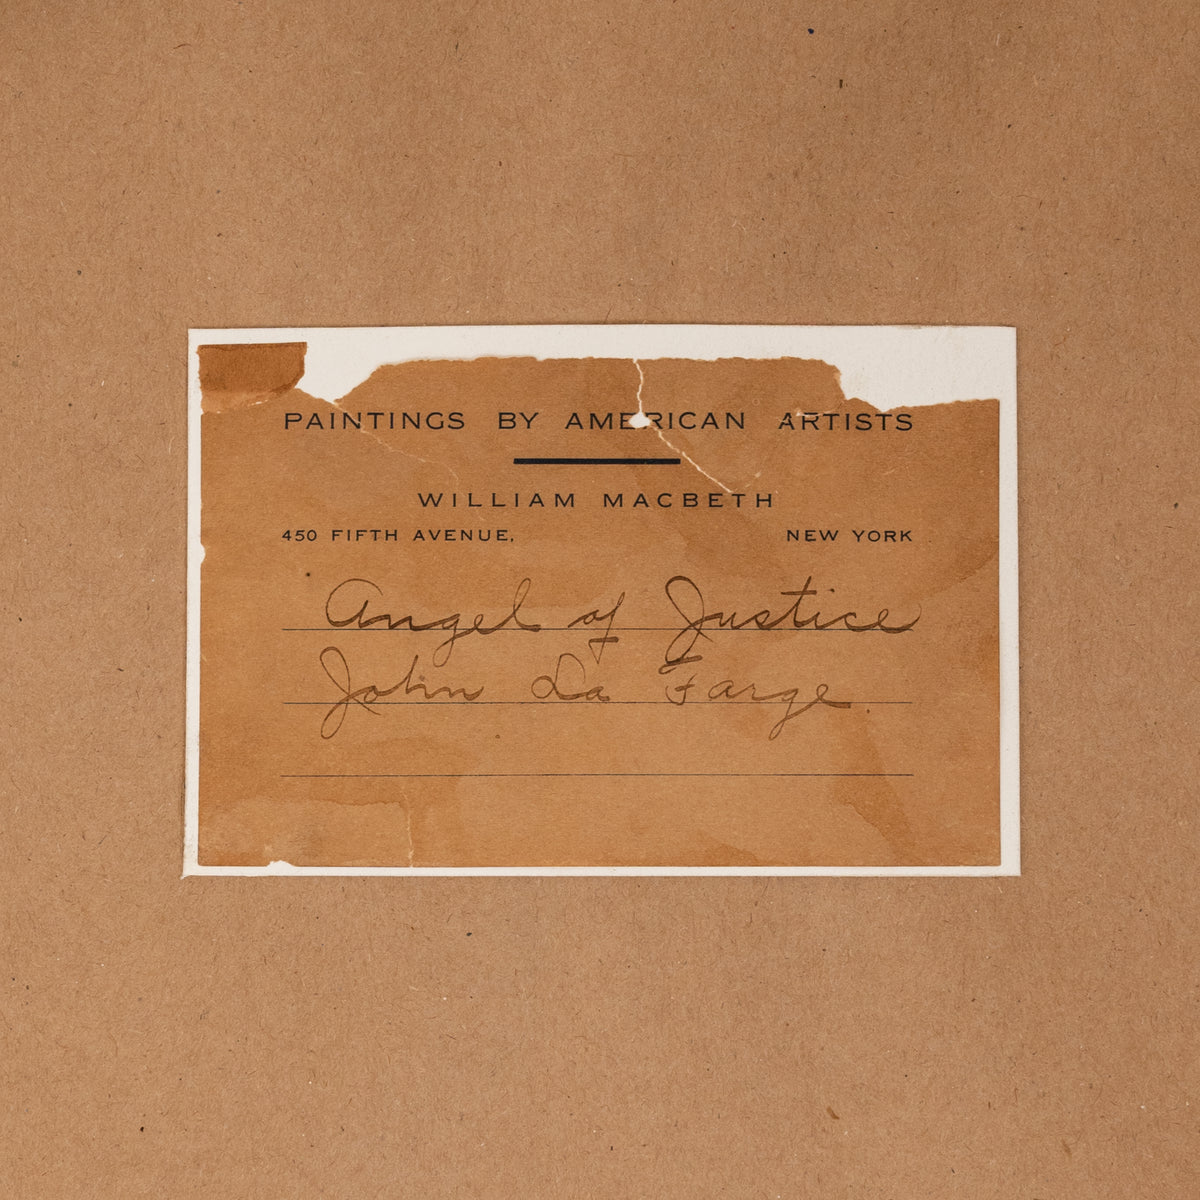 PAINTINGS BY AMERICAN ARTISTS
WILLIAM MACBETH
450 FIFTH AVENUE, NEW YORK
Angel of Justice
John La Farge.